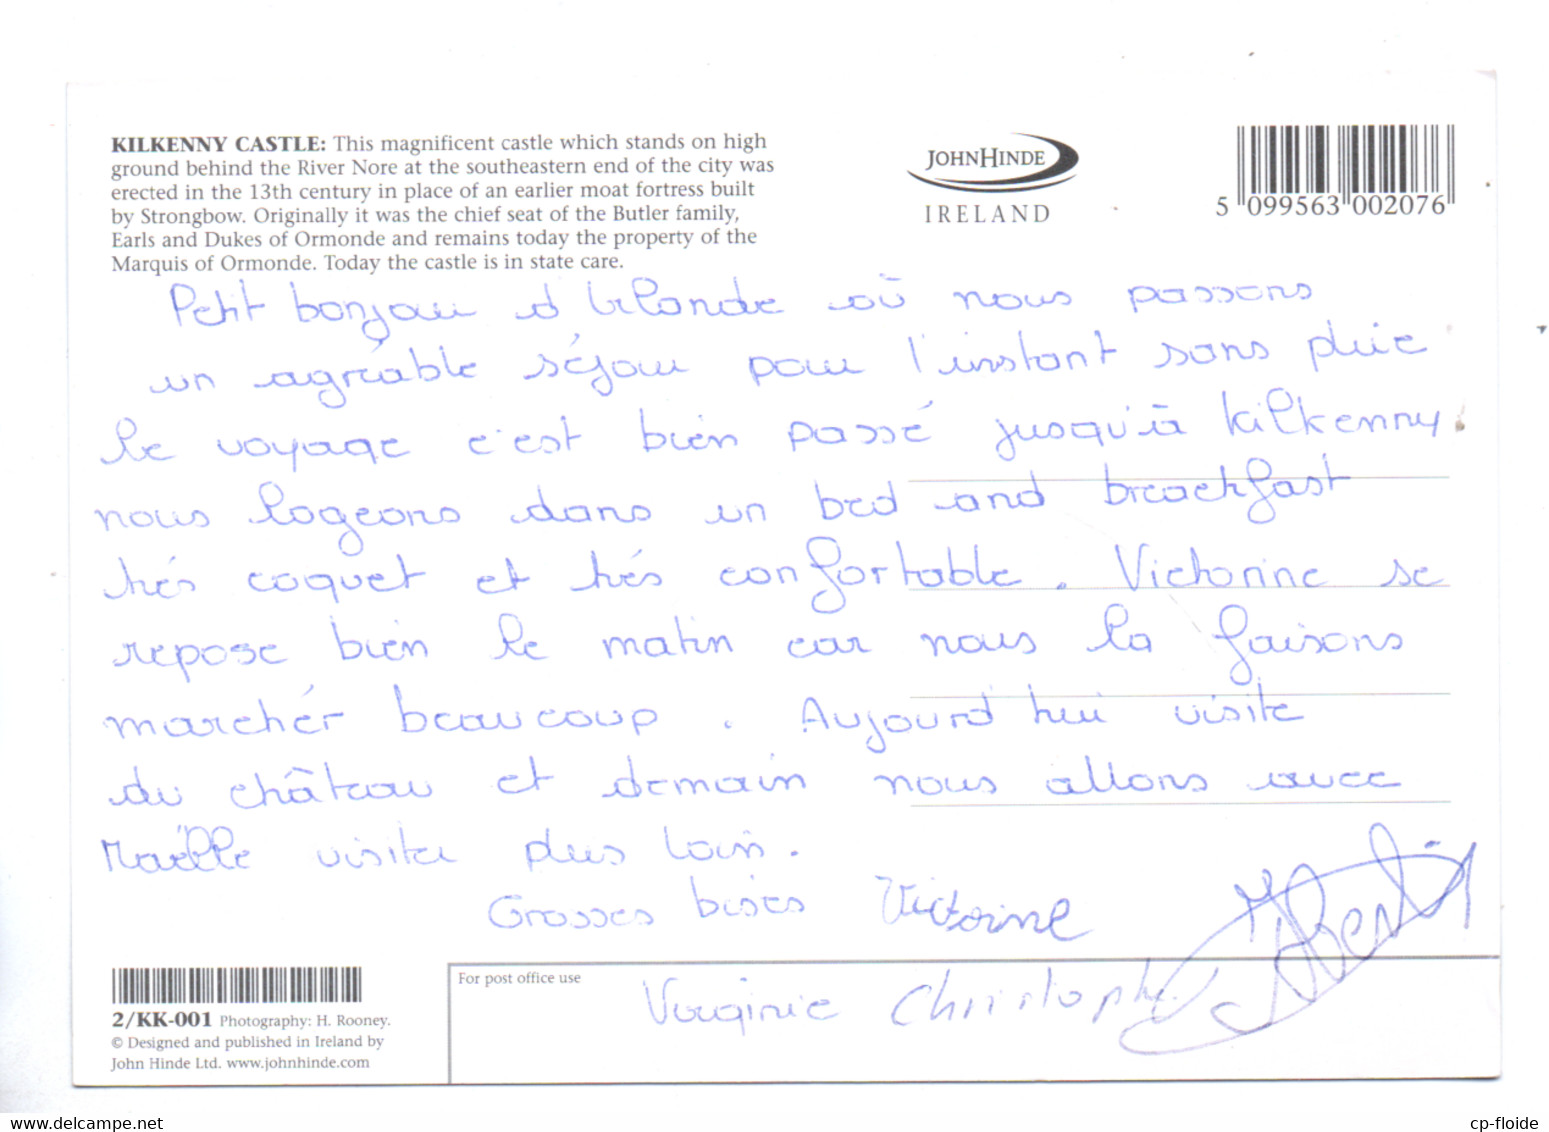 KILKENNY CASTLE: This magnificent castle which stands on high
ground behind the River Nore at the southeastern end of the city was
erected in the 13th century in place of an earlier moat fortress built
by Strongbow. Originally it was the chief seat of the Butler family,
Earls and Dukes of Ormonde and remains today the property of the
Marquis of Ormonde. Today the castle is in state care.
JOHNHINDE
IRELAND
5 099563 002076
Petit bonjour d'Irlande où nous passons
un agréable séjour pour l'instant sans pluie
le voyage c'est bien passé jusqu'à Kilkenny.
nous logeons dans un bed and breackfast
trés coquet et trés confortable. Victorine se
repose bien le matin car nous la faisons
marchér beaucoup. Aujourd'hui visite
du château et demain nous allons avec
Maëlle visiter plus loin.
Grosses bises Victorine
Virginie Christophe
For post office use
2/KK-001 Photography: H. Rooney.
© Designed and published in Ireland by
John Hinde Ltd. www.johnhinde.com
www.delcampe.net
cp-floide